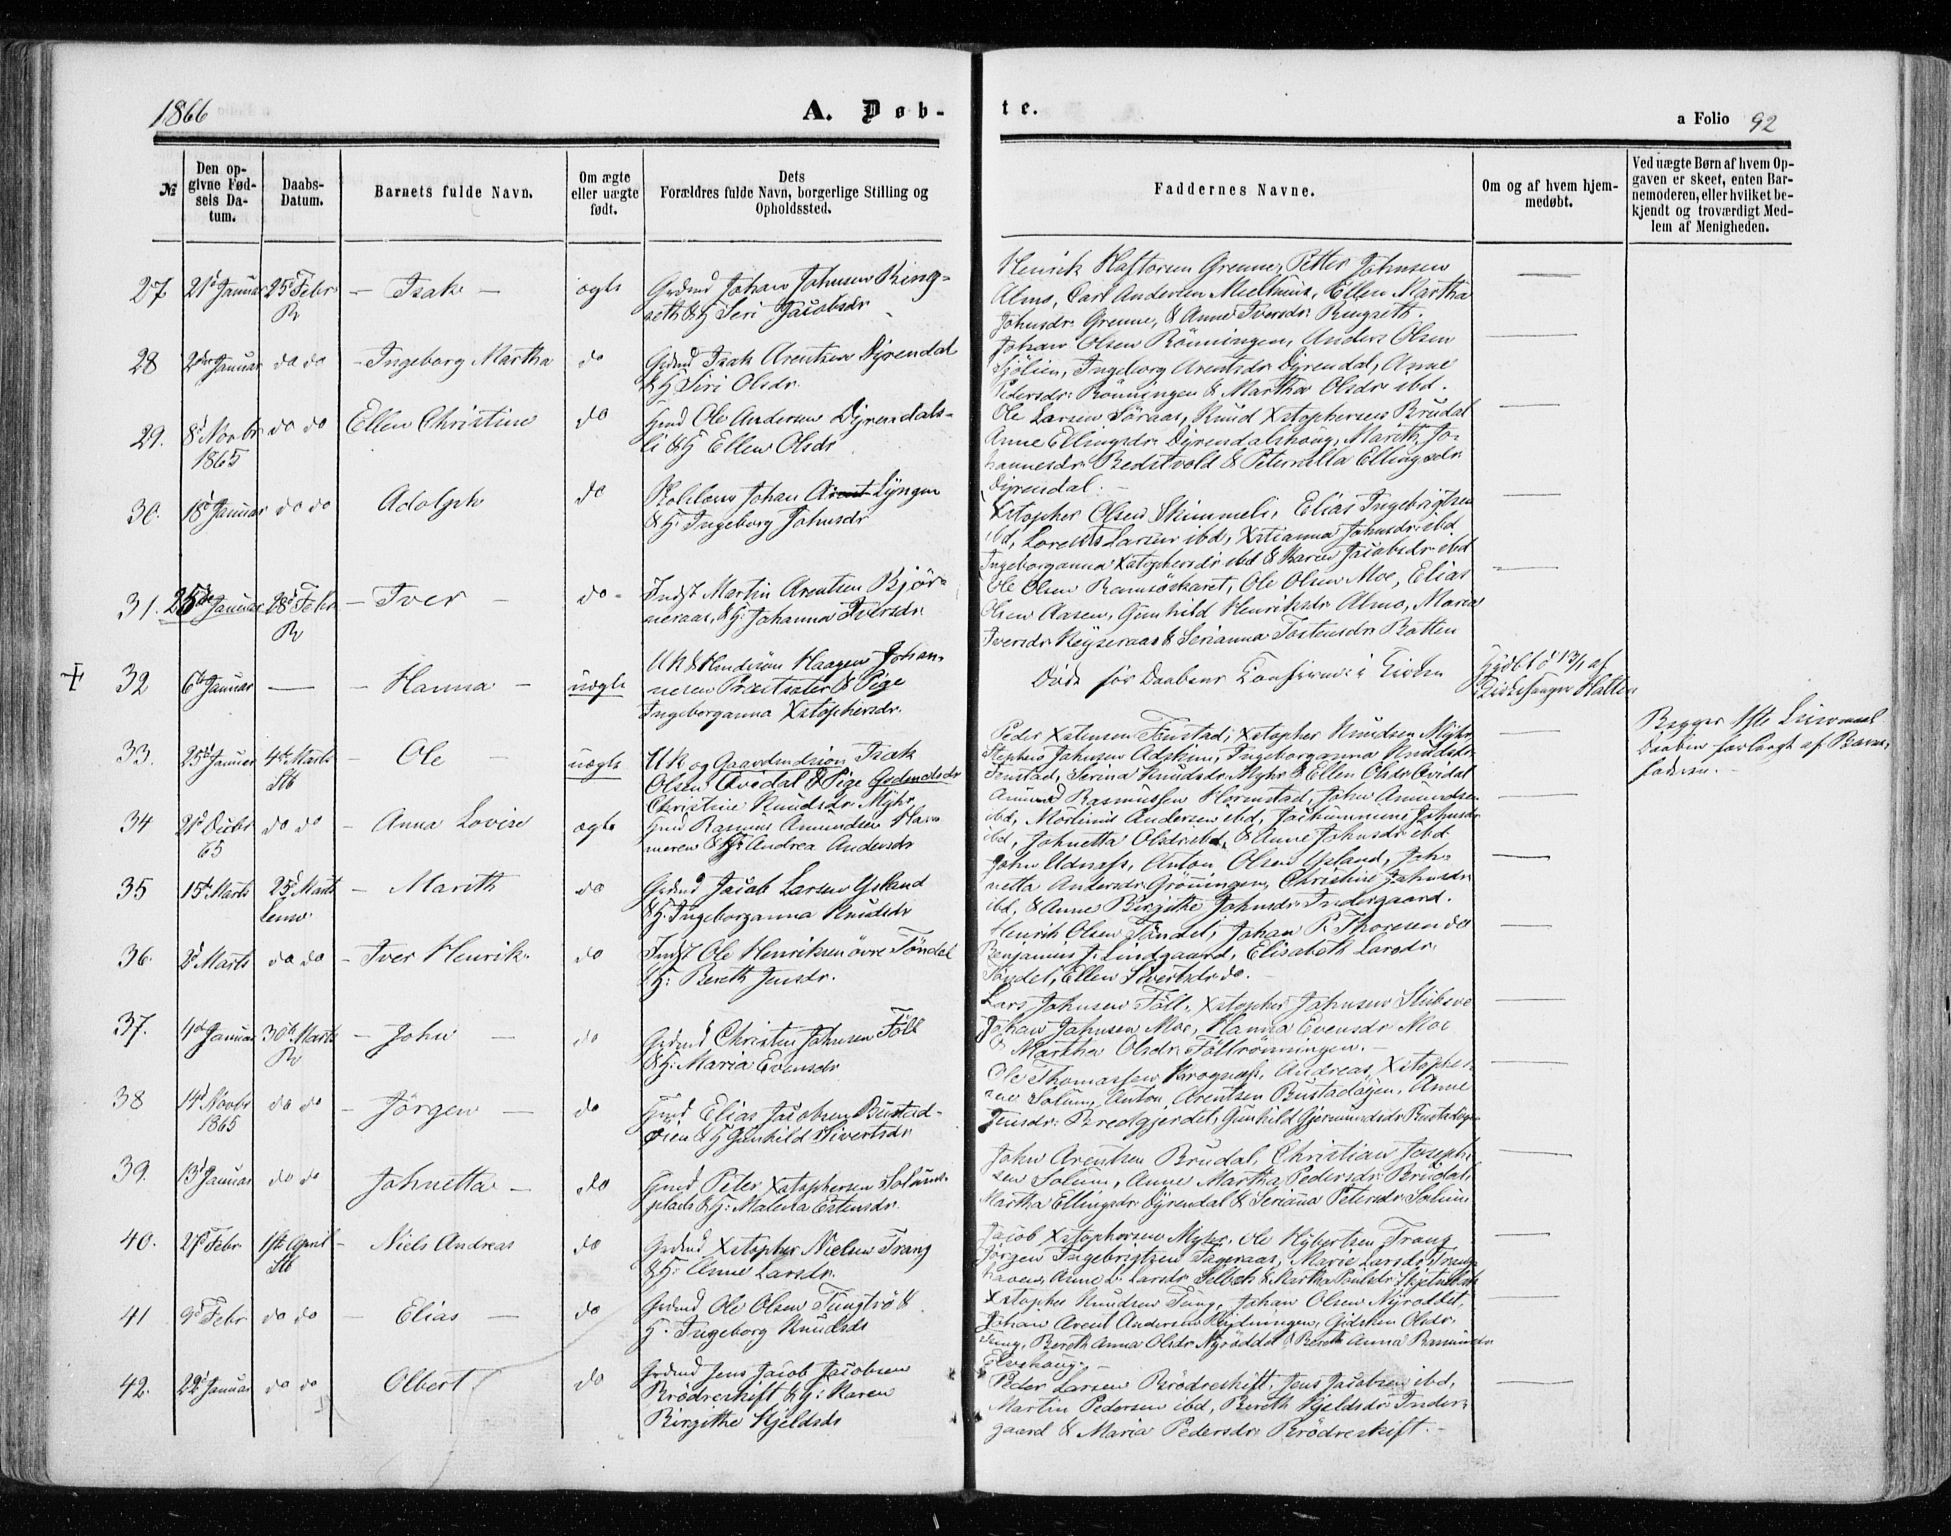 1866
A. Døb-
te.
a Folio 92
№
Den op-
givne Fød-
sels Da-
tum.
Daabs-
Datum.
Barnets fulde Navn.
Om ægte
eller uægte
født.
Dets
Forældres fulde Navn, borgerlige Stilling og
Opholdssted.
Faddernes Navne.
Om og af hvem hjem-
medøbt.
Ved uægte Børn af hvem Op-
gaven er skeet, enten Bar-
nemoderen, eller hvilket be-
kjendt og troværdigt Med-
lem af Menigheden.
27 21d Januar 25d Febr R - Isak - ægte
Grdmd Johan Johnsen Ring-
seth & H Seri Jacobsdr
Henrik Haftorsen Grenne, Petter Johnsen
Almo, Carl Andersen Ellen Martha
Johnsdr. Grenne, & Anne Iversdr. Ringseth.
28 2den Januar do do - Ingeborg Martha do
Grdmd Isak Arentsen Dyrendal
& H Siri Olsdr.
Johan Olsen Rönningen, Anders Olsen
Sjølien, Ingeborg Arentsdr Dyrendal, Anne
Pedersdr. Rönningen & Martha Olsdr ibd.
29. 8d Novbr 1865 do do Ellen Christine do
Hmd Ole Andersen Dyrendals-
li & H Ellen Olsdr
Ole Larsen Söraas, Knud Xstophersen Brudal
Anne Ellingsdr. Dyrendalshaug, Marith Jo-
hannesdr. Bedstvold & Peternilla Ellingsdr.
Dyrendal. -
30. 18d Januar do do Adolph do
Johan Arent Lyngen
& H: Ingeborg Johnsdr
Xstopher Olsen Skimmeli, Elias Ingebrigtsen
ibd, Lorents Larsen ibd, Xstianna Johnsdr. ibd.
Ingeborganna Xstophersdr ibd & Karen Jacobsdr. ibd
31. 25de Januar 28d Febr R - Iver - do -
Indst Martin Arentsen Bjør-
neraas, & H: Johanna Iversdr.
Ole Olsen Ramsöskaret, Ole Olsen Moe, Elias
Olsen Aasen, Gunhild Henriksdr. Almo, Maria
Iversdr. & Serianna Tostensdr. Botten
32 6te Januar — - Hanna - uægte
UK & Haagen Johan-
nesen & Pige
Ingeborganna Xstophersdr.
Døde før Daabens i Kirken
Hjdbt d 13/1 af
Kirkesanger
33. 25de Januar 4de Marts Stb - Ole - uægte
UK og Gaardmdssön Isak
Olsen Qvidal & Pige Grdmdsdr
Christine Knudsdr. Myhr
Peder Xstensen Tinstad, Xstopher Knudsen Myhr,
Stephens Johnsen Ingeborganna Knudsdr.
Tinstad, Serina Knudsdr. Myhr & Ellen Olsdr Qvidal
Begges 1ste Leiermaal
Daaben forlangt af Barne-
faderen. -
34 21d Decbr 65 do do - Anna Lovise ægte
Hmd Rasmus Amundsen Ham-
meren & H: Andrea Andersdr
Amund Rasmussen John Amundsen
ibd, Andersen ibd, Johnsdr
ibd, Johnetta Olsdr ibd, & Anne Johnsdr ibd.
35 15de Marts 25d Marts - Marith do
Grdmd Jacob Larsen Ysland
& H. Ingeborganna Knudsdr
John Anton Olsen Ysland, Joh-
netta Andersdr. Grönningen, Christine Johnsdr.
ibd, & Anne Birgithe Johnsdr. Indergaard.
36. 2d Marts do do - Iver Henrik. do
Indst Ole Henriksen övre Töndel
& H: Bereth Jensdr.
Henrik Olsen Töndel, Johan P. Thoresen do
Benjamin J. Lindgaard, Elisabeth Larsdr.
Töndel, Ellen Sivertsdr. do.
37. 4de Januar 30te Marts R - John - do
Grdmd Christen Johnsen Föll
& H: Maria Evensdr
Lars Johnsen Föll, Xstopher Johnsen
Johan Johnsen Moe, Hanna Evensdr. Moe
& Martha Olsdr. Föllrönningen. -
38 14d Novbr 1865 do do - Jörgen - do
Hmd Elias Jacobsen Bustad-
öien & H Gunhild Sivertsdr
Ole Thomassen Andreas Xstopher-
sen Solum, Anton Arentsen Bustadöyen, Anne
Jensdr. Bredgjerdet, Gunhild Gjermundsdr. Bustadöyen
39. 13d Januar do do Johnetta - do
Hmd Peter Xstophersen Solums-
plads & H: Malena Estensdr.
John Arentsen Brudal, Christian Joseph-
sen Solum, Anne Martha Pedersdr. Brudal,
Martha Ellingsdr. Dyrendal & Serianna Petersdr. Solum
40. 27d Febr 1ste April Stb - Niels Andreas do
Grdmd Xstopher Nielsen Trang
& H: Anne Larsdr.
Jacob Xstophersen Myhr, Ole Hybertsen Trang
Jörgen Ingebrigtsen Fageraas, Marie Larsdr.
Anne L. Larsdr. Selbek & Martha Paulsdr.
41 9d Febr do do - Elias - do
Grdmd Ole Olsen Tung &
H. Ingeborg Knudsdr
Xstopher Knudsen Tung, Johan Olsen Nyröddet,
Johan Arent Andersen Gidsken Olsdr.
Tung, Bereth Anna Olsdr. Nyröddet & Bereth Anna Rasmusdr.
Elvehaug. -
42. 22d Januar do do Olbert do
Grdmd Jens Jacob Jacobsen
Brödreskift & H: Karen
Birgithe Kjeldsdr
Peder Larsen Brödreskift, Jens Jacobsen ibd,
Martin Pedersen ibd, Bereth Kjeldsdr. Inder-
gaard & Maria Pedersdr. Brödreskift. -